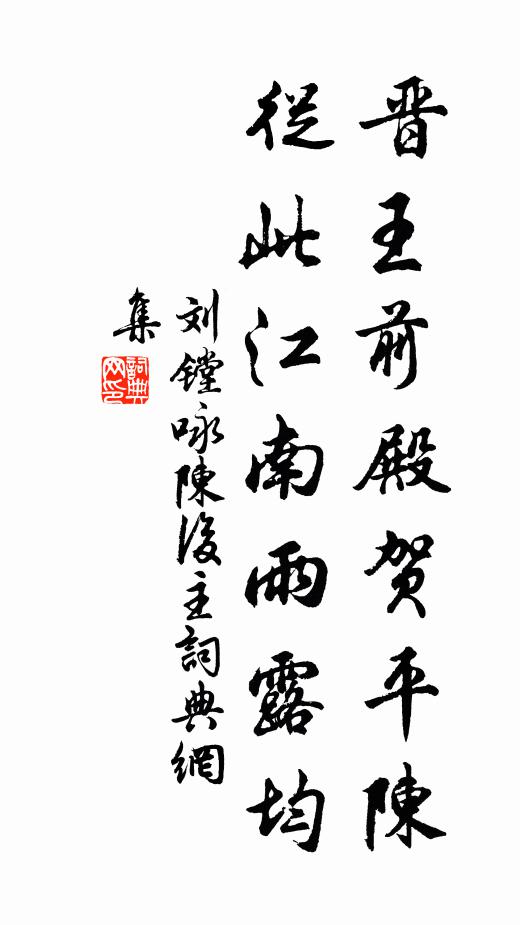 晋王前殿贺平陳
從此江南雨露均
刘鏜咏陳後主詞典網
集
詞典
网印